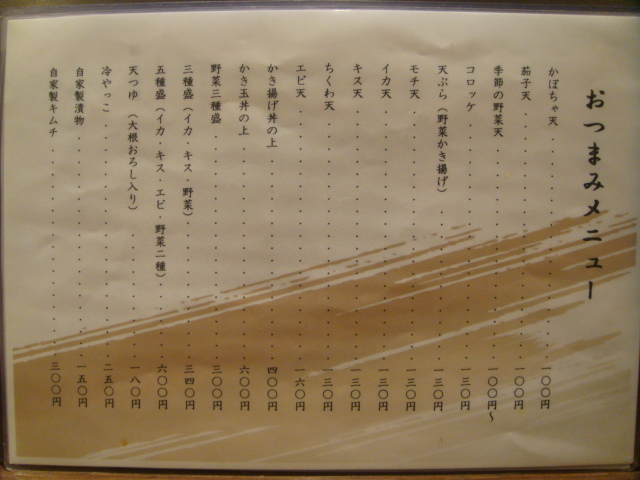 おつまみメニュー
かぼちゃ天 一〇〇円
茄子天 一〇〇円
季節の野菜天 一〇〇円〜
コロッケ 一三〇円
天ぷら（野菜かき揚げ） 一三〇円
モチ天 一三〇円
イカ天 一三〇円
キス天 一三〇円
ちくわ天 一三〇円
エビ天 一六〇円
かき揚げ丼の上 四〇〇円
かき玉丼の上 六〇〇円
野菜三種盛 三〇〇円
三種盛（イカ・キス・野菜） 三四〇円
五種盛（イカ・キス・エビ・野菜二種） 六〇〇円
天つゆ（大根おろし入り） 一八〇円
冷やっこ 二五〇円
自家製漬物 一五〇円
自家製キムチ 三〇〇円